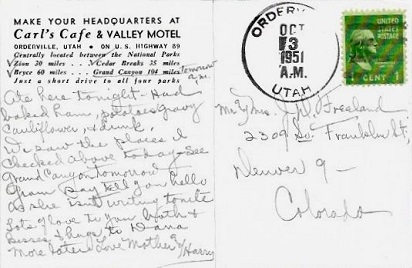 MAKE YOUR HEADQUARTERS AT
Carl's Cafe & VALLEY MOTEL
ORDERVILLE, UTAH • ON U.S. HIGHWAY 89
Centrally located between the National Parks
Zion 20 miles . . . Cedar Breaks 35 miles
Bryce 60 miles . . . Grand Canyon 104 miles
Just a short drive to all four parks
tomorrow
Ate here tonight - Had
baked ham, potatoes gravy
Cauliflower & drink,
We saw the places I
Checked above today - See
Grand Canyon tomorrow
Gram say tell you hello
as she isn't writing tonite
Lots of love to you both &
kisses & hugs to Dana
More later Love Mother & Harry
ORDERVILLE
OCT
3
1951
A.M.
UTAH
1 CENT 1
Mr & Mrs. J. W. Freeland
2309 So. Franklin St,
Denver 9 -
Colorado